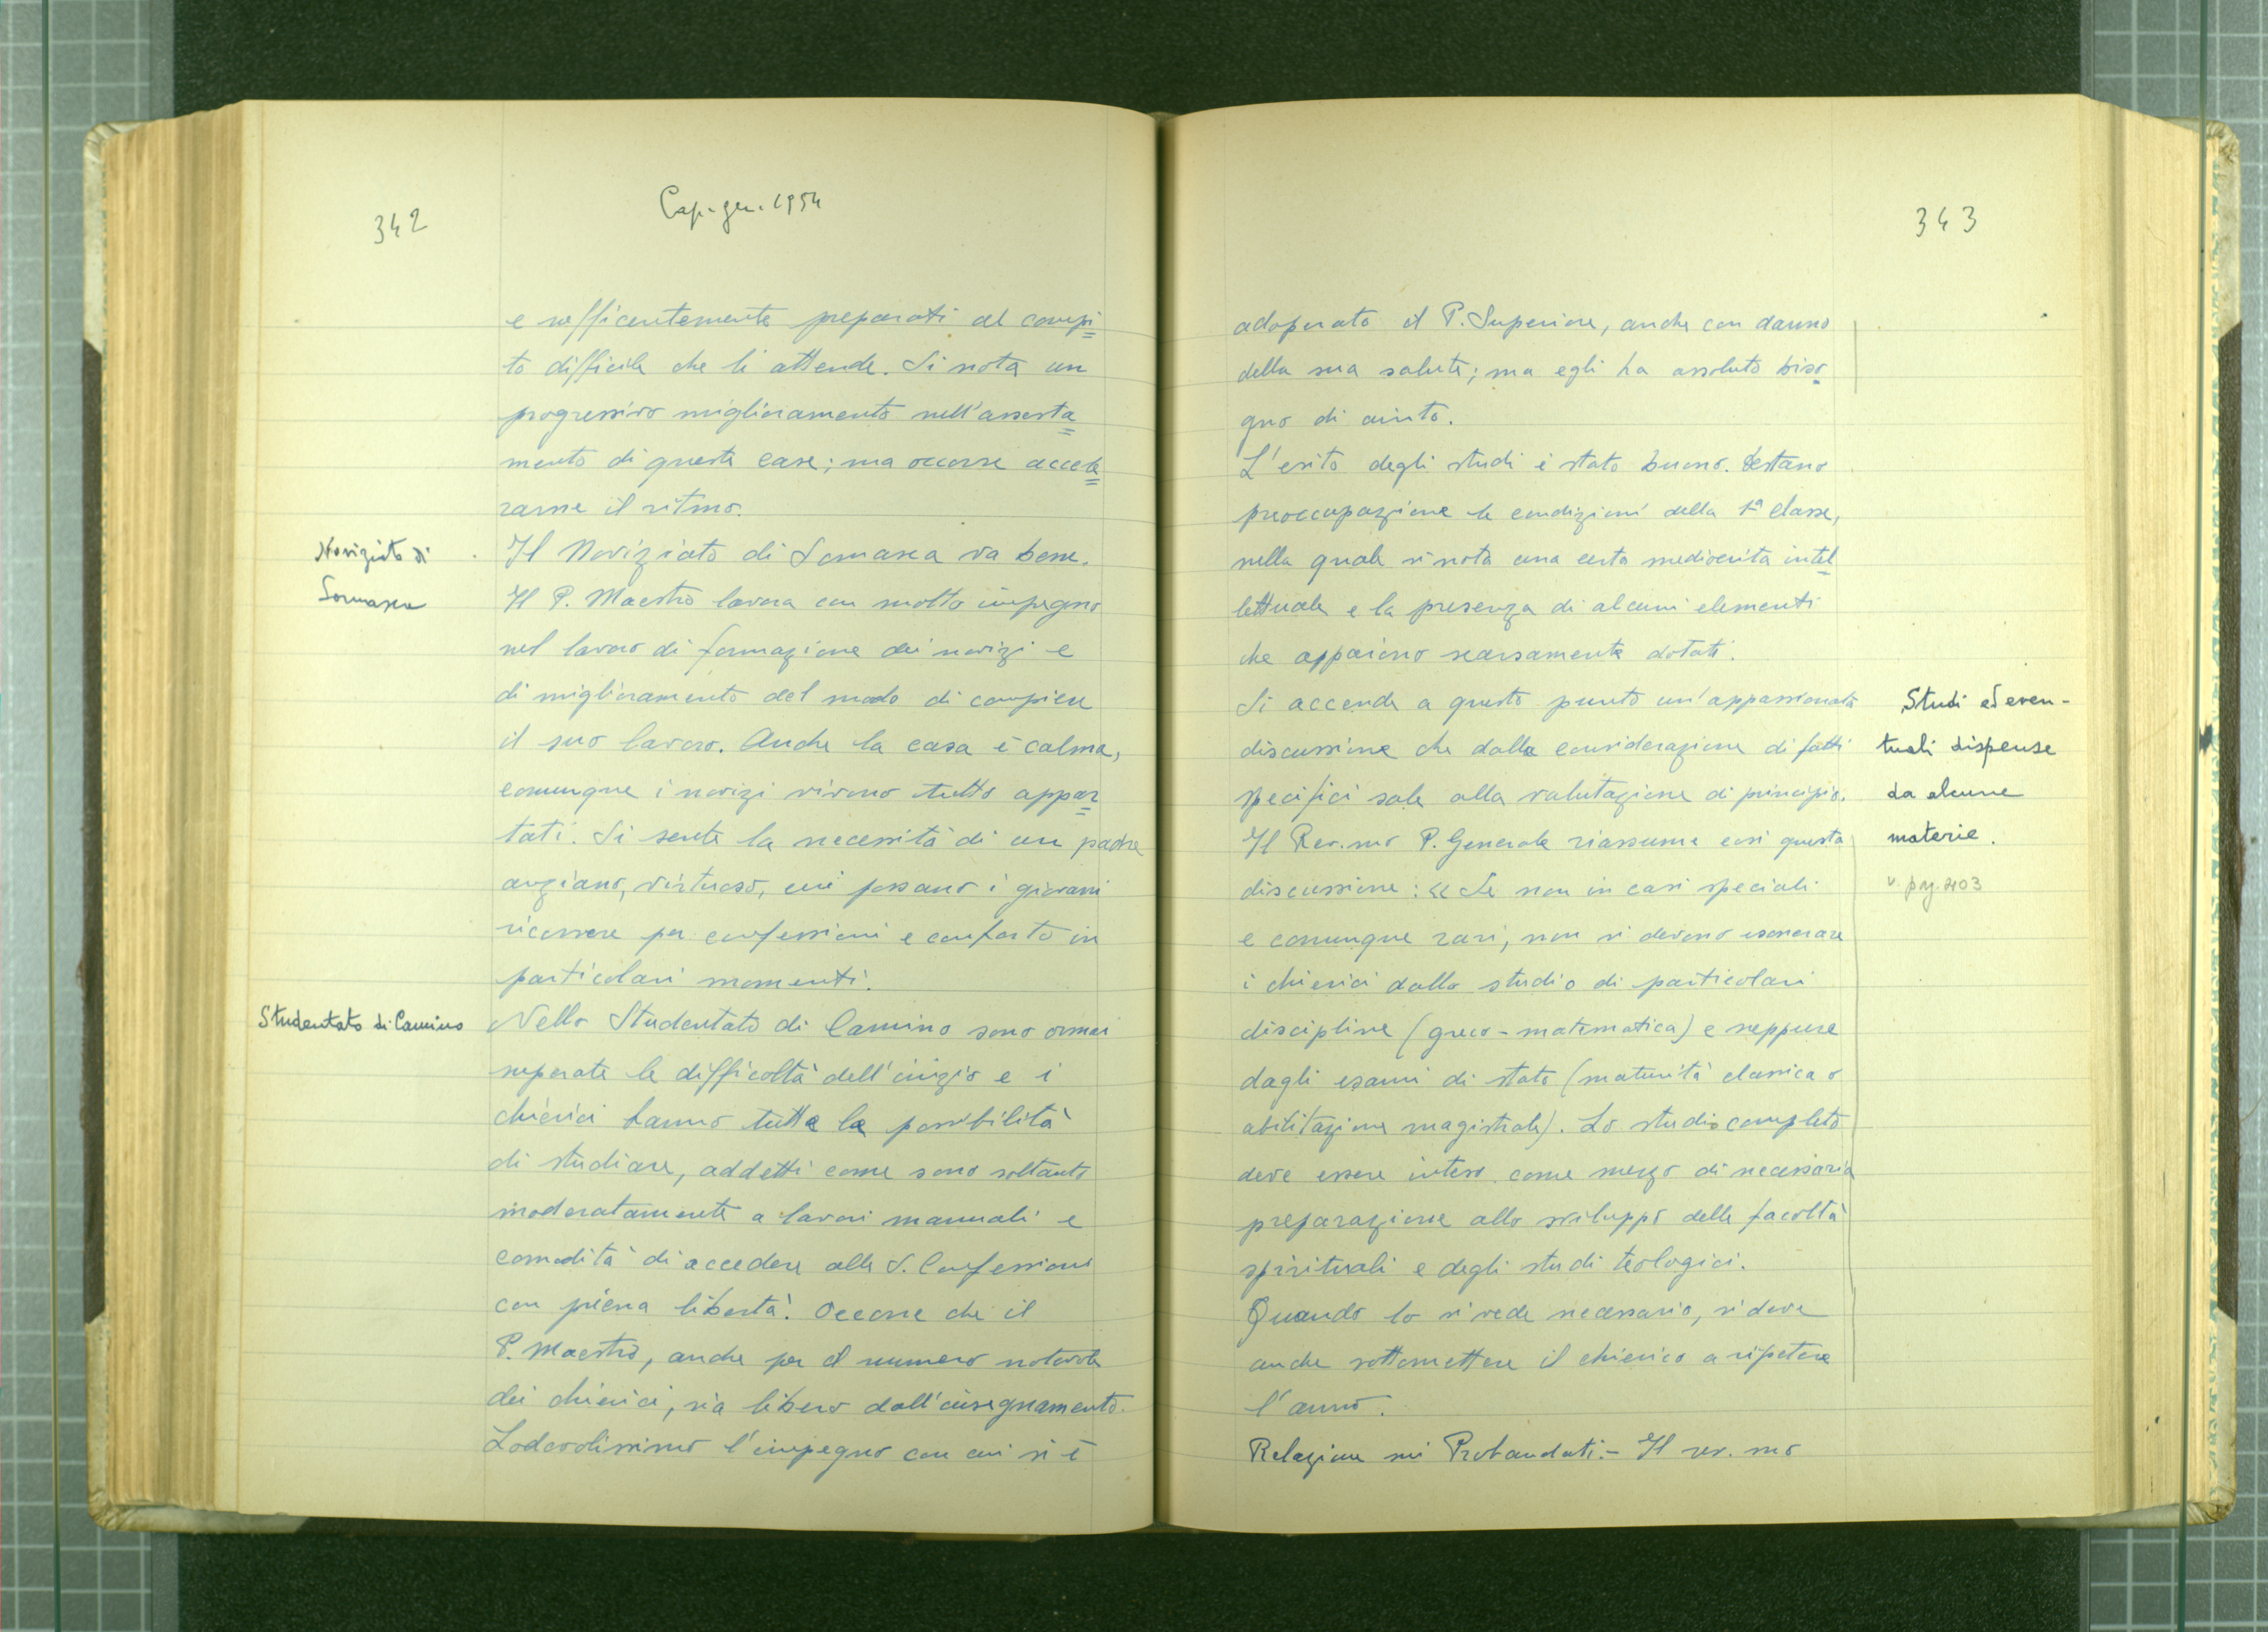 342
Cap. gen. 1954
e sufficentemente preparati al compi=
to difficile che li attende. Si nota un
progressivo miglioramento nell'assesta=
mento di queste case; ma occorre accele=
rarne il ritmo.
Noviziato di
Somasca
Il Noviziato di Somasca va bene.
Il P. Maestro lavora con molto impegno
nel lavoro di formazione dei novizi e
di miglioramento del modo di compiere
il suo lavoro. Anche la casa è calma,
comunque i novizi vivono tutto appar=
tati. Si sente la necessità di un padre
anziano, virtuoso, cui possano i giovani
ricorrere per confessioni e conforto in
particolari momenti.
Studentato di Camino
Nello Studentato di Camino sono ormai
superate le difficoltà dell'inizio e i
chierici hanno tutte le possibilità
di studiare, addetti come sono soltanto
moderatamente a lavori manuali e
comodità di accedere alla S. Confessione
con piena libertà. Occorre che il
P. Maestro, anche per il numero notevole
dei chierici, sia libero dall'insegnamento.
Lodevolissimo l'impegno con cui si è
343
adoperato il P. Superiore, anche con danno
della sua salute; ma egli ha assoluto biso-
gno di aiuto.
L'esito degli studi è stato buono. Destano
preoccupazione le condizioni della 1ª classe,
nella quale si nota una certa mediocrità intel-
lettuale e la presenza di alcuni elementi
che appaiono scarsamente dotati.
Si accende a questo punto un'appassionata
discussione che dalla considerazione di fatti
specifici sale alla valutazione di principio.
Il Rev.mo P. Generale riassume così questa
discussione: « Se non in casi speciali
e comunque rari, non si devono esonerare
i chierici dallo studio di particolari
discipline (greco - matematica) e neppure
dagli esami di stato (maturità classica o
abilitazione magistrale). Lo studio completo
deve essere inteso come mezzo di necessaria
preparazione allo sviluppo delle facoltà
spirituali e degli studi teologici.
Quando lo si vede necessario, si deve
anche sottomettere il chierico a ripetere
l'anno.
Relazione sui Probandati. - Il rev.mo
Studi ed even-
tuali dispense
da alcune
materie.
v. pag. 403